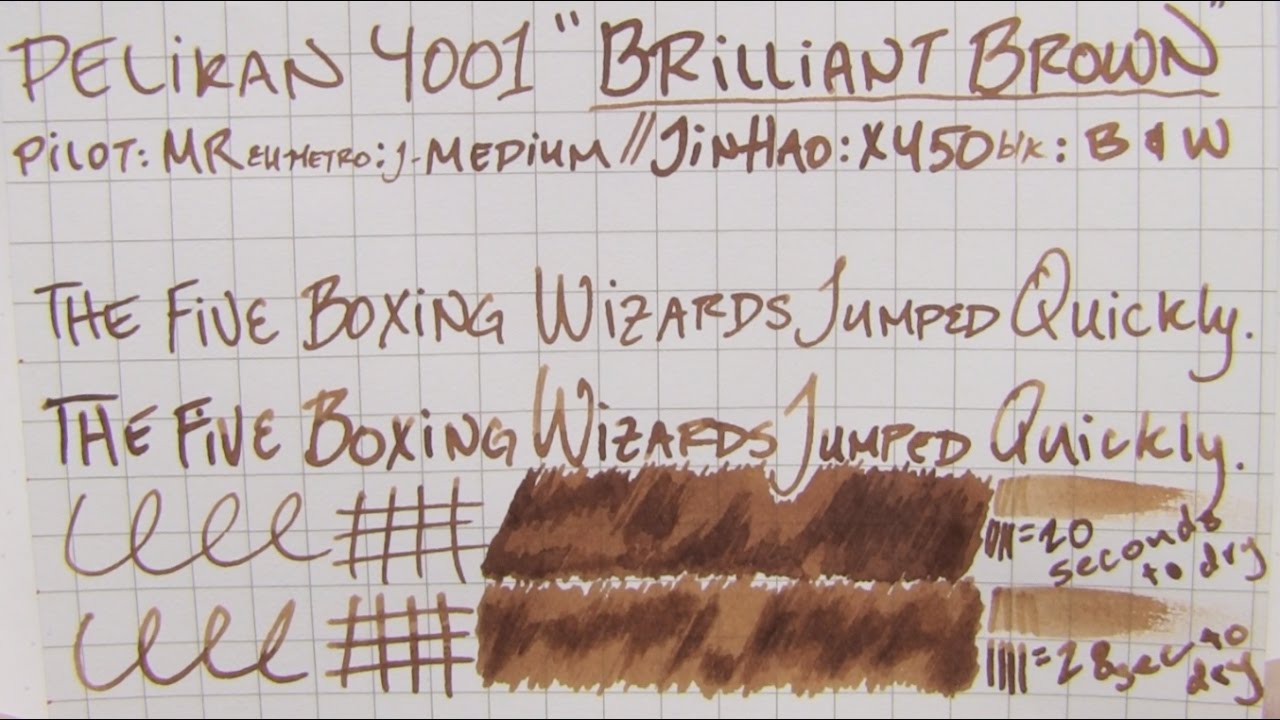 PELIKAN 4001 "BRILLIANT BROWN"
PILOT: MR EU METRO: J- MEDIUM // JINHAO: X450 blk: B & W
THE FIVE BOXING WIZARDS JUMPED QUICKLY.
THE FIVE BOXING WIZARDS JUMPED QUICKLY.
=20
seconds
to dry
=28 sec to
dry